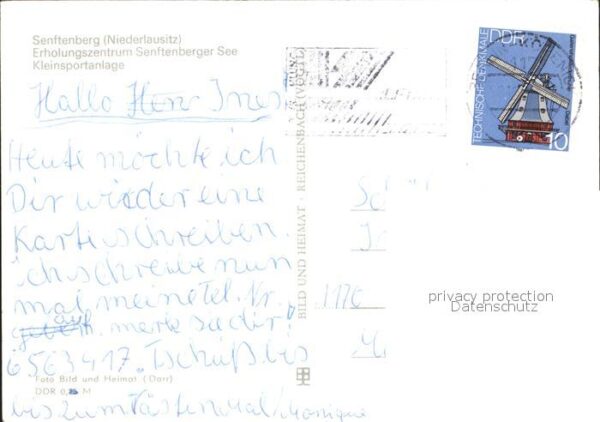 Senftenberg (Niederlausitz)
Erholungszentrum Senftenberger See
Kleinsportanlage
Hallo Herr Ines
Heute möchte ich
Dir wieder eine
Karte schreiben.
ich schreibe nun
mal meine Tel. Nr.
auf
merke sie dir!
6563417. Tschüß bis
bis zum nästen mal/Monique
Foto Bild und Heimat (Darr)
DDR 0,25 M
BILD UND HEIMAT · REICHENBACH (VOGTL)
DDR
TECHNISCHE DENKMALE
10
1170
privacy protection
Datenschutz